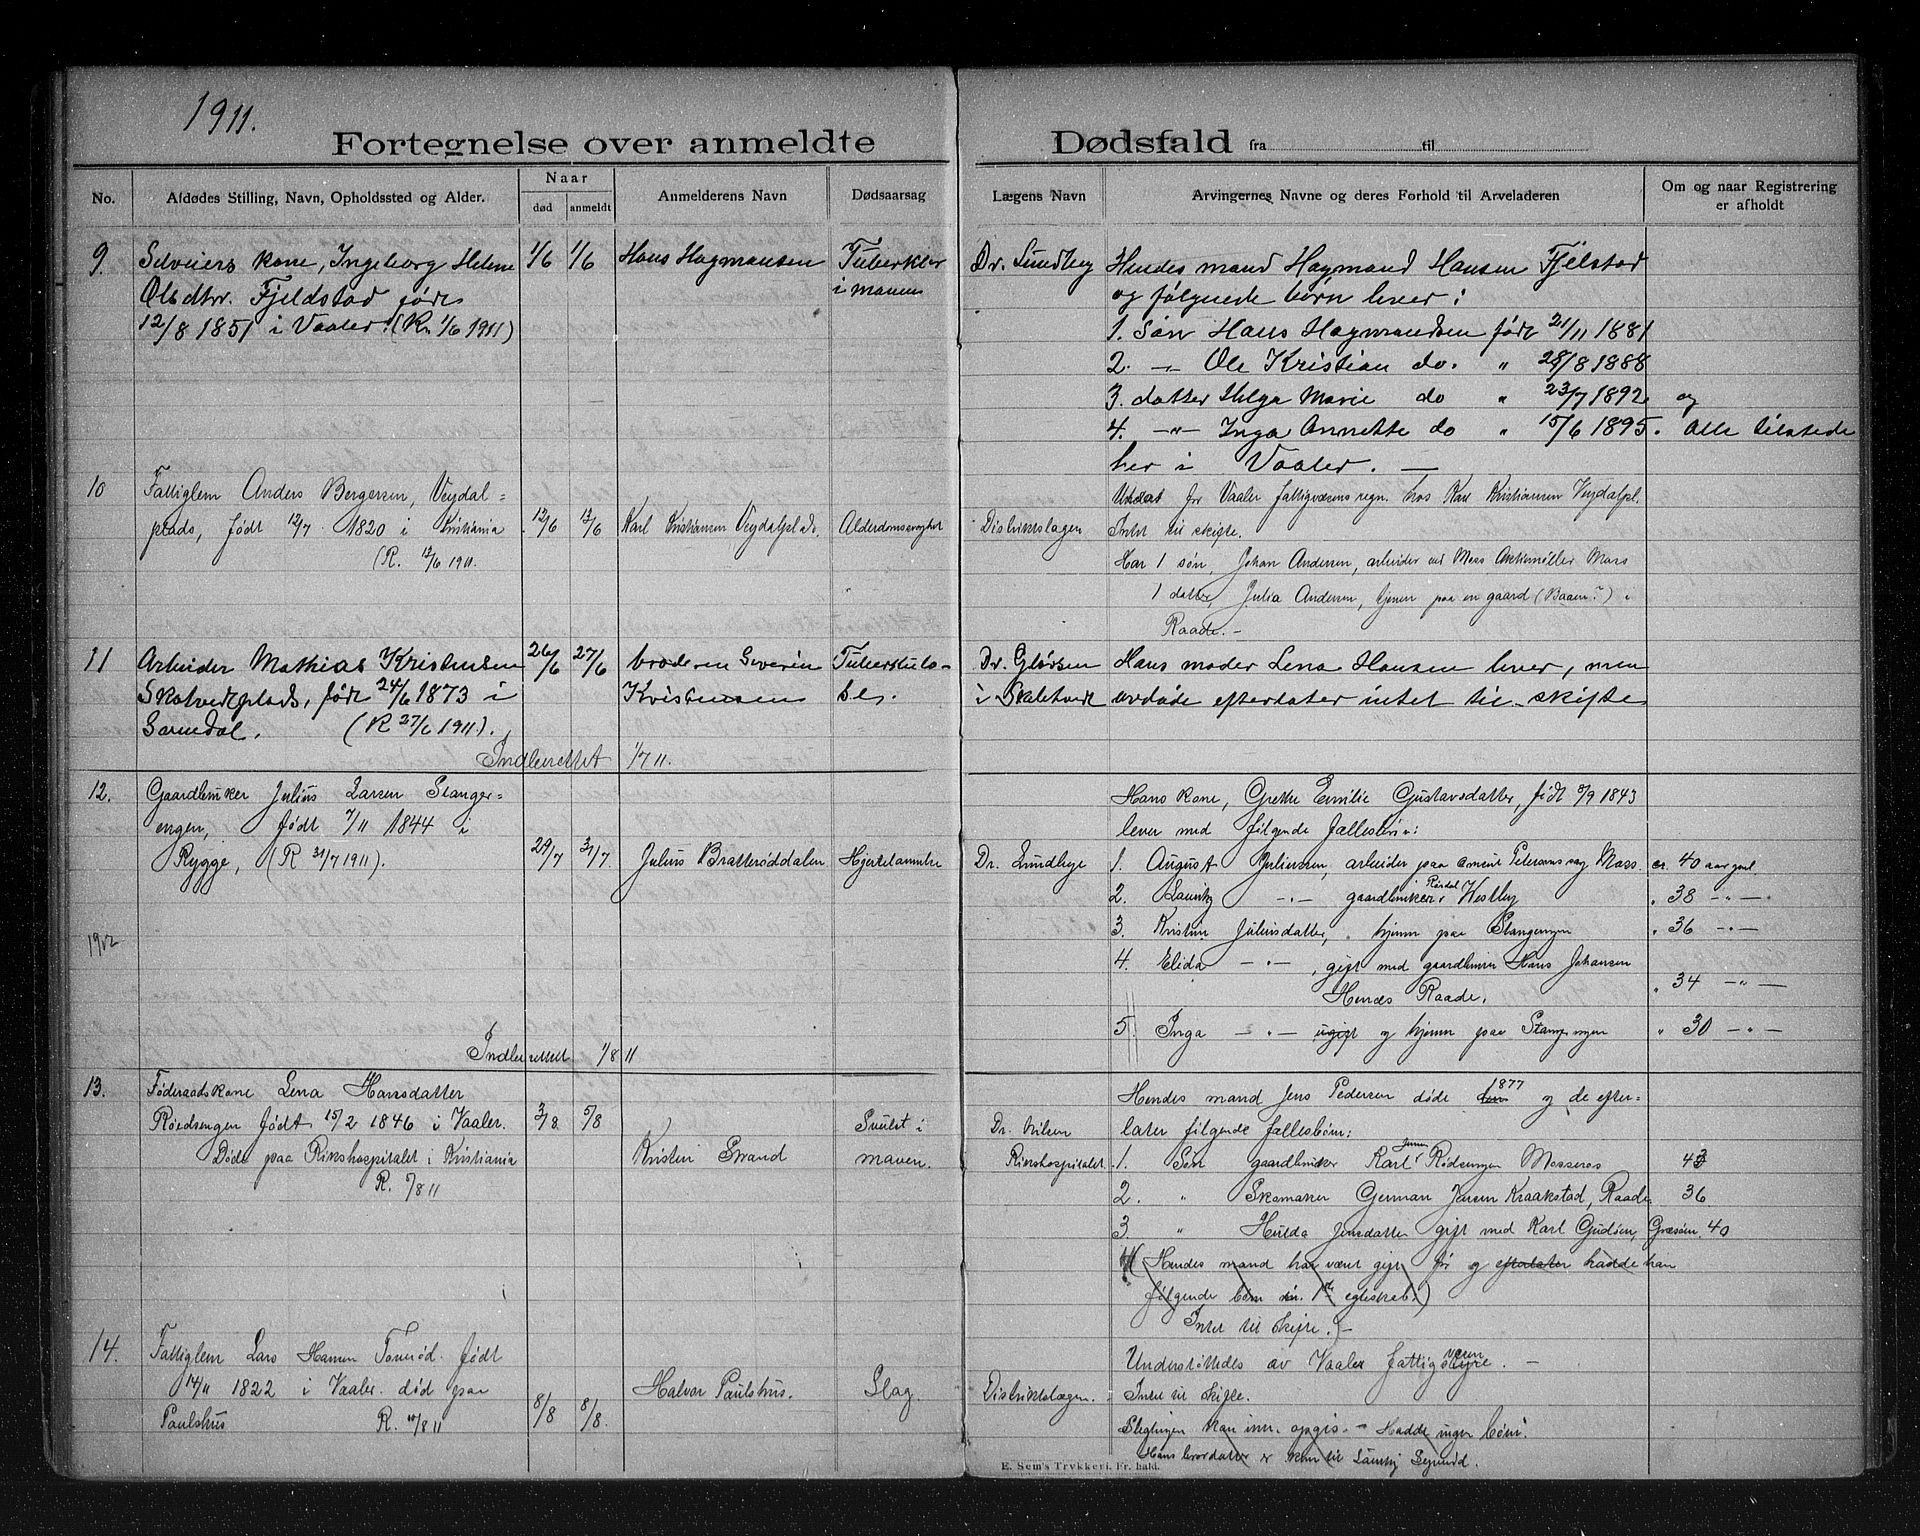 1911.
Fortegnelse over anmeldte Dødsfald fra til
No.
Afdødes Stilling, Navn, Opholdssted og Alder.
Naar
død
anmeldt
Anmelderens Navn
Dødsaarsag
Lægens Navn
Arvingernes Navne og deres Forhold til Arveladeren
Om og naar Registrering
er afholdt
9.
Selveiers kone, Ingeborg Helene
Olsdtr. Fjeldstad født
12/8 1851 i Vaaler. (R. 1/6 1911)
1/6
1/6
Hans Hagmansen
Tuberkler
i maven
Dr. Lundbey
Hendes mand Hagmand Hansen Fjelstad
og følgende børn lever:
1. Søn Hans Hagmandsen født 21/11 1881
2. -"- Ole Kristian do. " 28/8 1888
3. datter Helga Marie do " 23/7 1892 og
4. -"- Inga Annette do " 15/6 1895. Alle tilstede
her i Vaaler. —
10
Fattiglem Anders Bergersen, Veydal=
plads, født 12/7 1820 i Kristiania
(R. 12/6 1911.
12/6
12/6
Karl Kristiansen Veydalplads
Alderdomssvaghet
Distriktslægen
Udsat for Vaaler fattigvæsens regn. hos Karl Kristiansen Veydalpl.
Intet til skifte.
Har 1 søn, Johan Andersen, arbeider ved Moss Aktiemøller Moss
1 datter, Julia Andersen, tjener paa en gaard (Baaen?) i
Raade. —
11
Arbeider Mathias Kristensen
Skatvedtplads, født 24/6 1873 i
Svendal. (R 27/6 1911).
26/6
27/6
broderen Severin
Kristensen
Tuberkulo-
se.
Dr. Glørsen
i Skiletvedt
Hans moder Lena Hansen lever, men
avdøde efterlater intet til skifte
Indberettet 1/7 11.
12.
Gaardbruker Julius Larsen Stanger=
engen, født 7/11 1844 i
Rygge, (R 31/7 1911).
29/7
31/7
Julius Bratterøddalen
Hjertelammelse
Dr. Lundbye
Hans kone, Grethe Emilie Gustavsdatter, født 8/9 1843
lever med følgende fællesbørn:
1. August Juliussen, arbeider paa Petersons sag Moss. ca. 40 aar gml.
2. Lauritz -"- gaardbruker Rørdal Westby " 38 -"-
3. Kristine Juliusdatter, hjemme paa Stangerengen " 36 -"-
4. Elida -"-, gift med gaardbruker Hans Johansen
Henæs Raade, " 34 -"-
5 Inga -"- ugift og hjemme paa Stangerengen " 30 -"-
1912
Indberettet 1/8 11
13.
Føderaadskone Lena Hansdatter
Rødsengen født 15/2 1846 i Vaaler.
Døde paa Rikshospitalet i Kristiania
R. 5/8 11
3/8
5/8
Kristen Strand
Svulst i
maven.
Dr. Nilsen
Rikshospitalet
1877
Hendes mand Jens Pedersen døde og de efter=
later følgende fællesbørn:
1. Søn gaardbruker Karl Jensen Rødsengen Mosseros 43
2. " Skomaker German Jensen Kraakstad, Raade 36
3 " Hulda Jensdatter gift med Karl Gudsen, Græsøen 40
(Hendes mand har været gift før og efterlater hadde han
følgende børn i 1ste egteskab.)
Intet til skifte. —
14.
Fattiglem Lars Hansen Tomrød. født
14/11 1822 i Vaaler. død paa
Paulshus R. 10/8 11
8/8
8/8.
Halvor Paulshus.
Slag.
Distriktslægen.
Understøttedes av Vaaler fattigvæsen. —
Intet til skifte.
Slegtninger kan ikke opgis. — Hadde ingen børn.
Hans brordatter er kone til Lauritz
E. Sem's Trykkeri, Fr. hald.